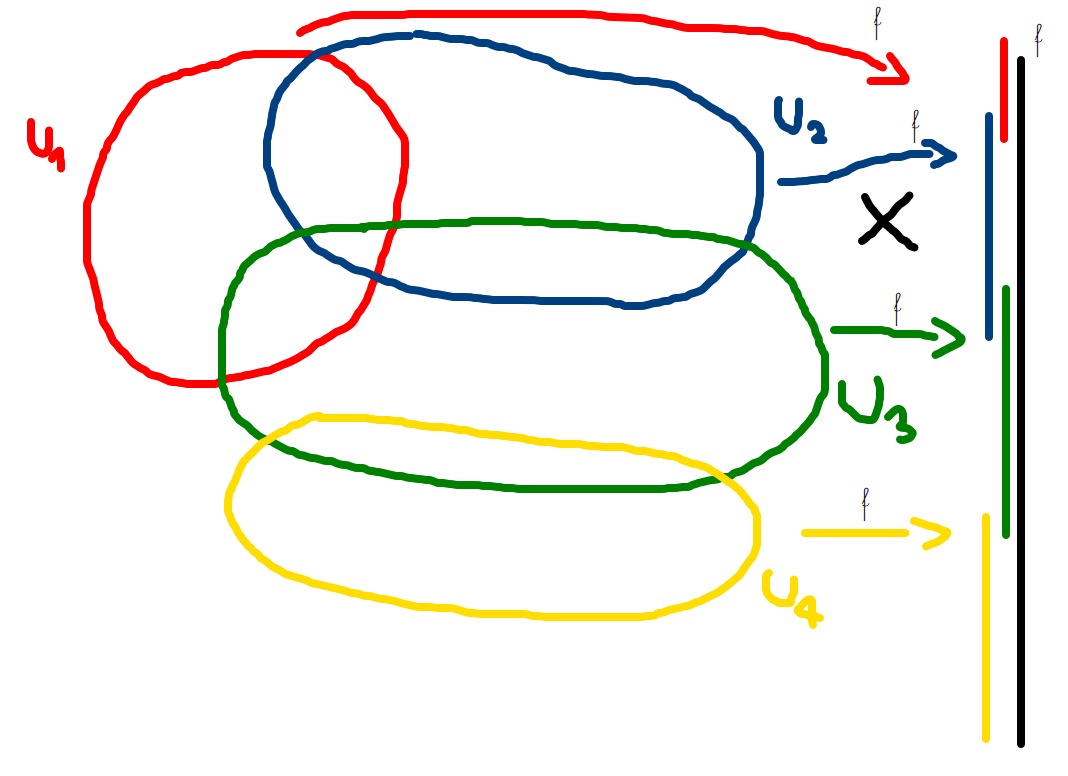 f
f
U1
U2
f
X
f
U3
f
U4